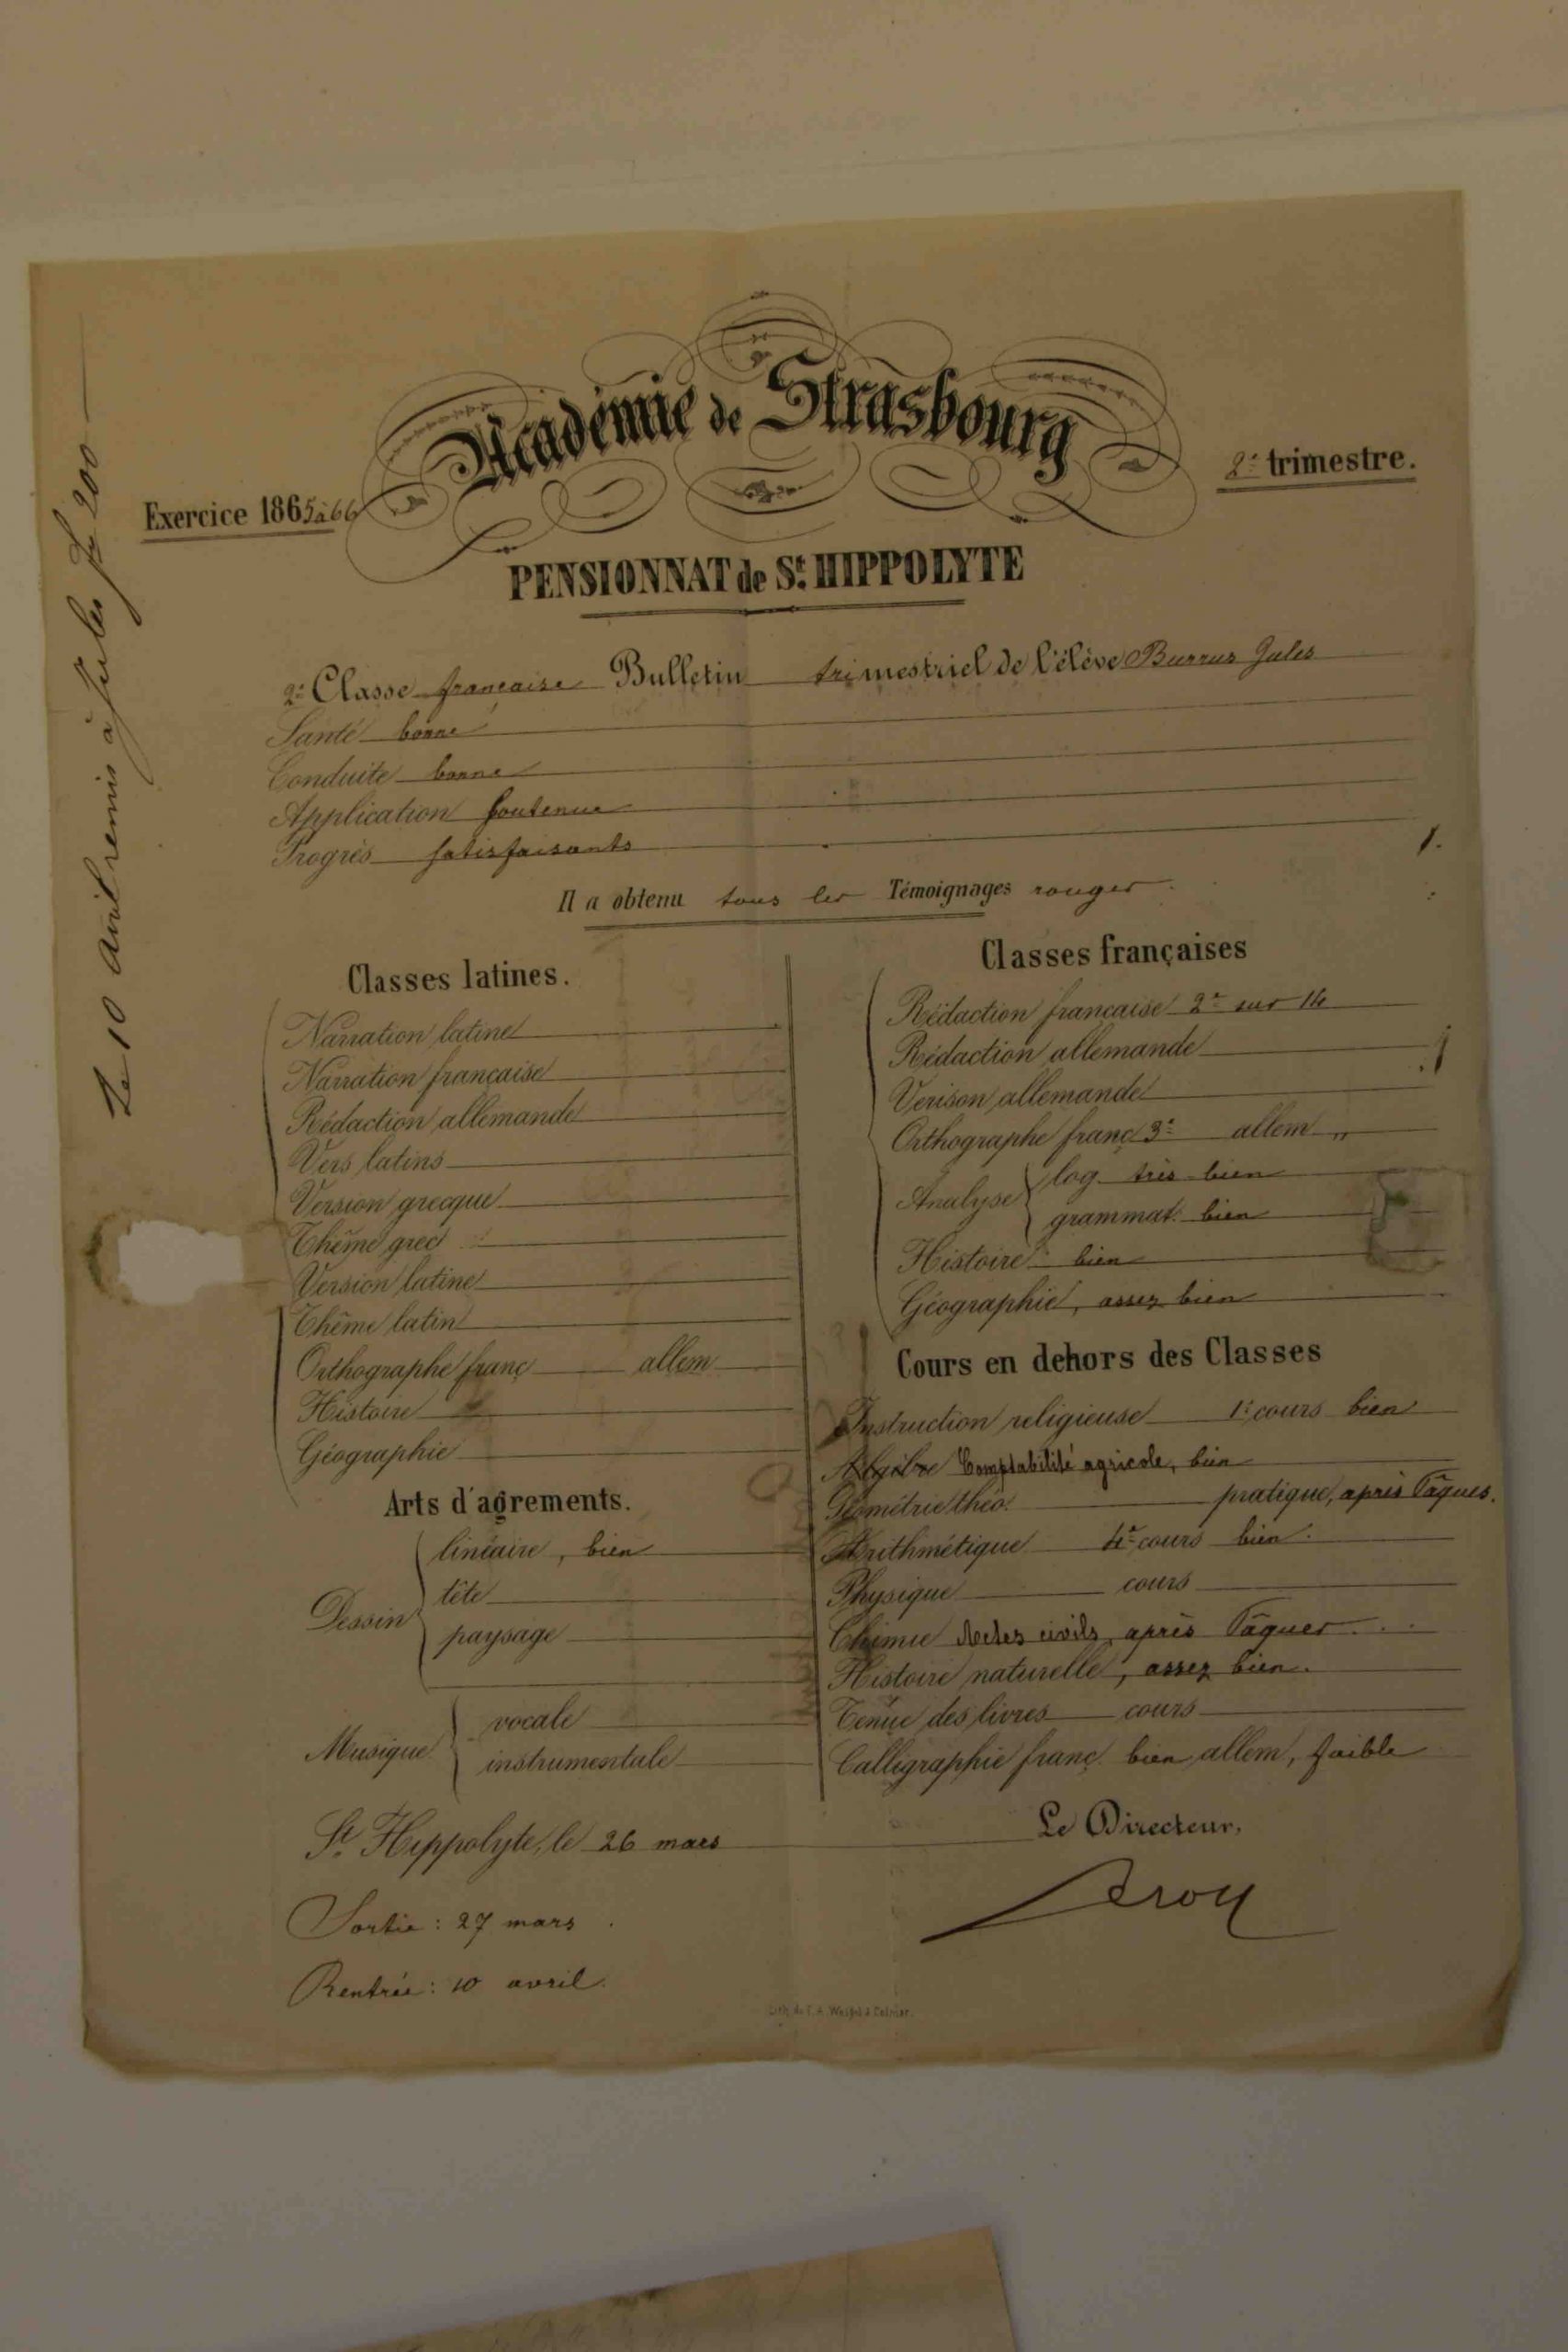 Académie de Strasbourg
Exercice 1865 à 66
2e trimestre.
PENSIONNAT de St. HIPPOLYTE
2e Classe française Bulletin trimestriel de l'élève Burrus Jules
Santé bonne
Conduite bonne
Application soutenue
Progrès satisfaisants
Il a obtenu tous les Témoignages rouges.
Classes latines.
Narration latine
Narration française
Rédaction allemande
Vers latins
Version grecque
Thême grec
Version latine
Thême latin
Orthographe franç allem
Histoire
Géographie
Arts d'agrements.
Dessin
linéaire, bien
tête
paysage
Musique
vocale
instrumentale
Classes françaises
Rédaction française 2e sur 14
Rédaction allemande
Verison allemande
Orthographe franç 3e allem "
Analyse
log. très-bien
grammat. bien
Histoire bien
Géographie, assez bien
Cours en dehors des Classes
Instruction religieuse 1er cours bien
Algèbre Comptabilité agricole, bien
Géométrie théo. pratique, après Pâques.
Arithmétique 4e cours bien.
Physique cours
Chimie Actes civils, après Pâques...
Histoire naturelle, assez bien.
Tenue des livres cours
Calligraphie franç. bien allem, faible
St. Hippolyte, le 26 mars
Le Directeur,
Sortie : 27 mars.
Rentrée : 10 avril.
Le 10 avril remis à Jules fr 200